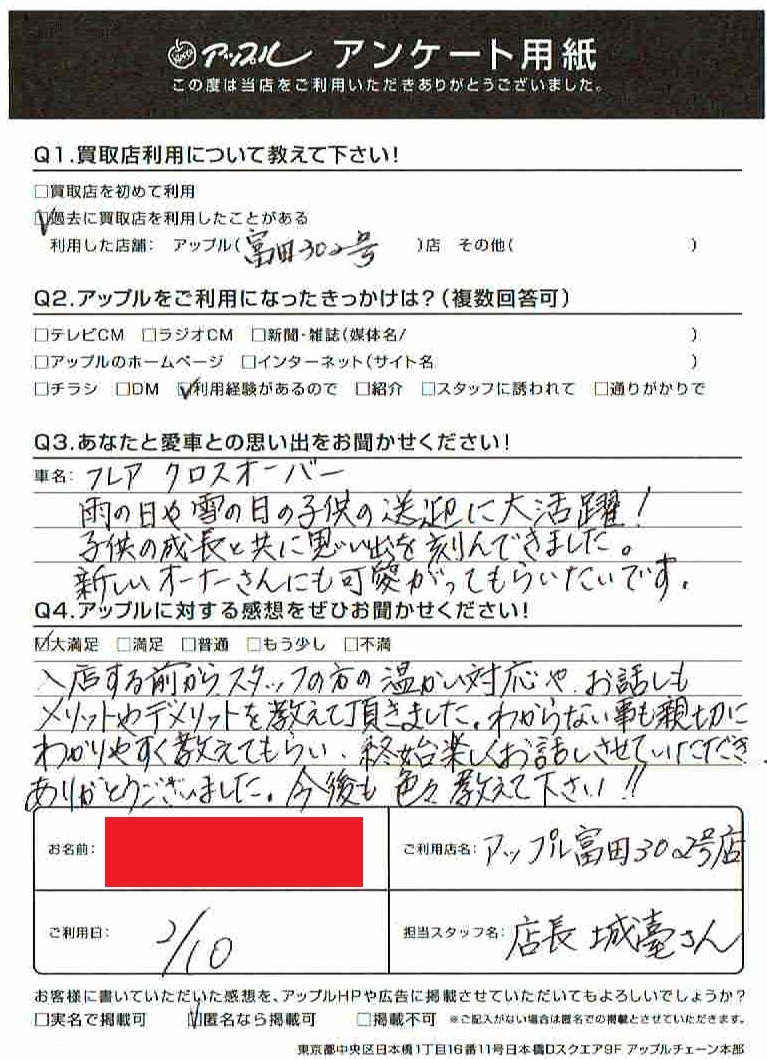 アップル アンケート用紙
この度は当店をご利用いただきありがとうございました。
Q1.買取店利用について教えて下さい!
□買取店を初めて利用
☑過去に買取店を利用したことがある
利用した店舗: アップル(富田302号 )店 その他( )
Q2.アップルをご利用になったきっかけは?(複数回答可)
□テレビCM □ラジオCM □新聞・雑誌(媒体名/ )
□アップルのホームページ □インターネット(サイト名 )
□チラシ □DM ☑利用経験があるので □紹介 □スタッフに誘われて □通りがかりで
Q3.あなたと愛車との思い出をお聞かせください!
車名: フレア クロスオーバー
雨の日や雪の日の子供の送迎に大活躍!
子供の成長と共に思い出を刻んできました。
新しいオーナーさんにも可愛がってもらいたいです。
Q4.アップルに対する感想をぜひお聞かせください!
☑大満足 □満足 □普通 □もう少し □不満
入店する前からスタッフの方の温かい対応や、お話しも
メリットやデメリットを教えて頂きました。わからない事も親切に
わかりやすく教えてもらい、終始楽しくお話しさせていただき、
ありがとうございました。今後も色々教えて下さい!!
お名前:
ご利用店名: アップル富田302号店
ご利用日: 2/10
担当スタッフ名: 店長 城臺さん
お客様に書いていただいた感想を、アップルHPや広告に掲載させていただいてもよろしいでしょうか?
□実名で掲載可 ☑匿名なら掲載可 □掲載不可 ※ご記入がない場合は匿名での掲載とさせていただきます。
東京都中央区日本橋1丁目16番11号日本橋Dスクエア9F アップルチェーン本部